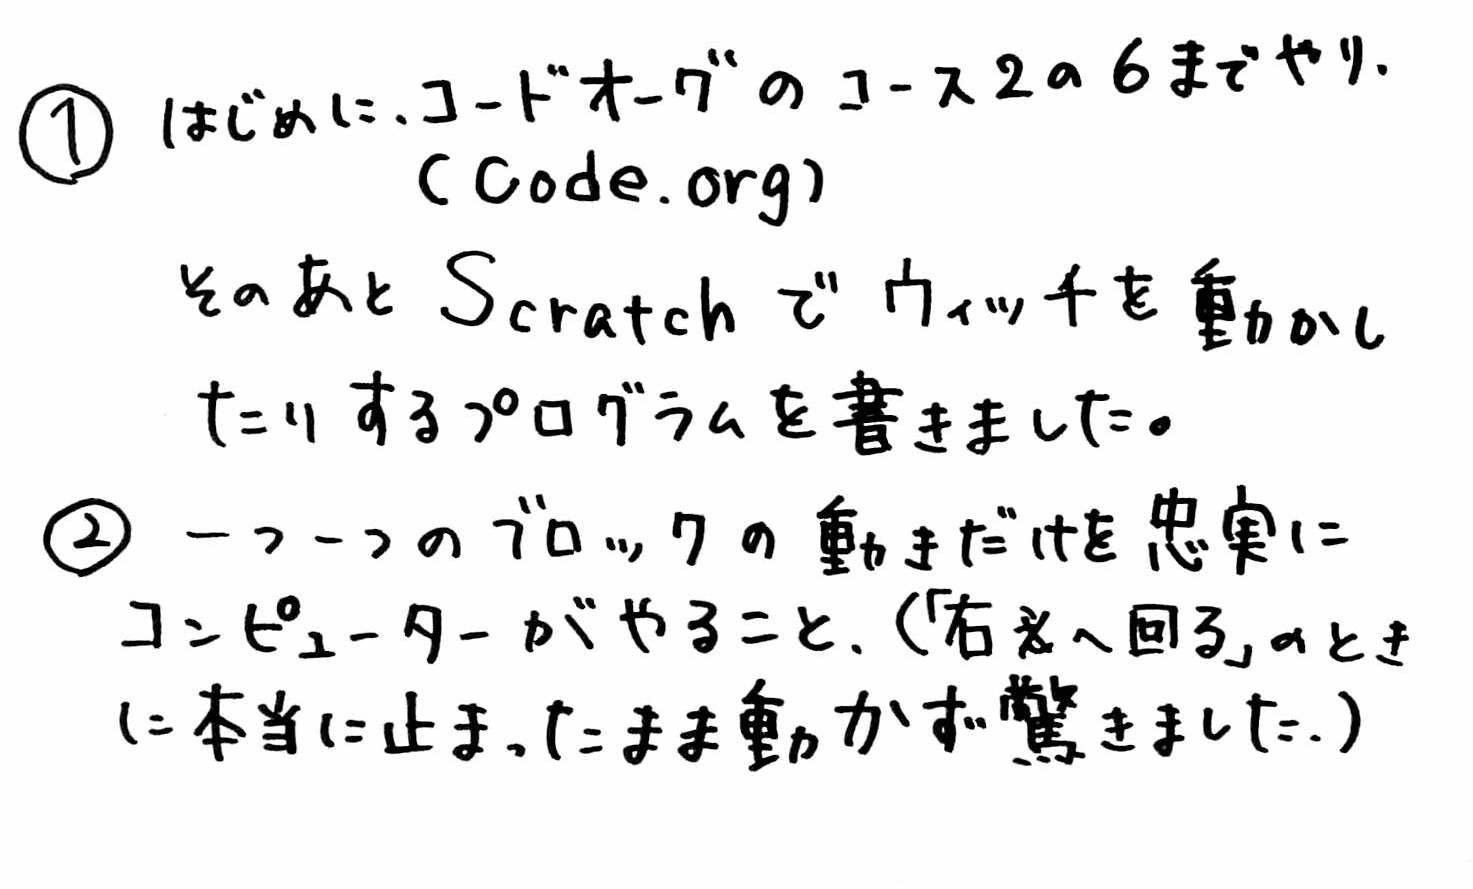 ① はじめに、コードオーグのコース2の6までやり、
(Code.org)
そのあと Scratchで ウィッチを動かし
たりするプログラムを書きました。
② 一つ一つのブロックの動きだけを忠実に
コンピューターがやること、(「右へ回る」のとき
に本当に止まったまま動かず驚きました.)